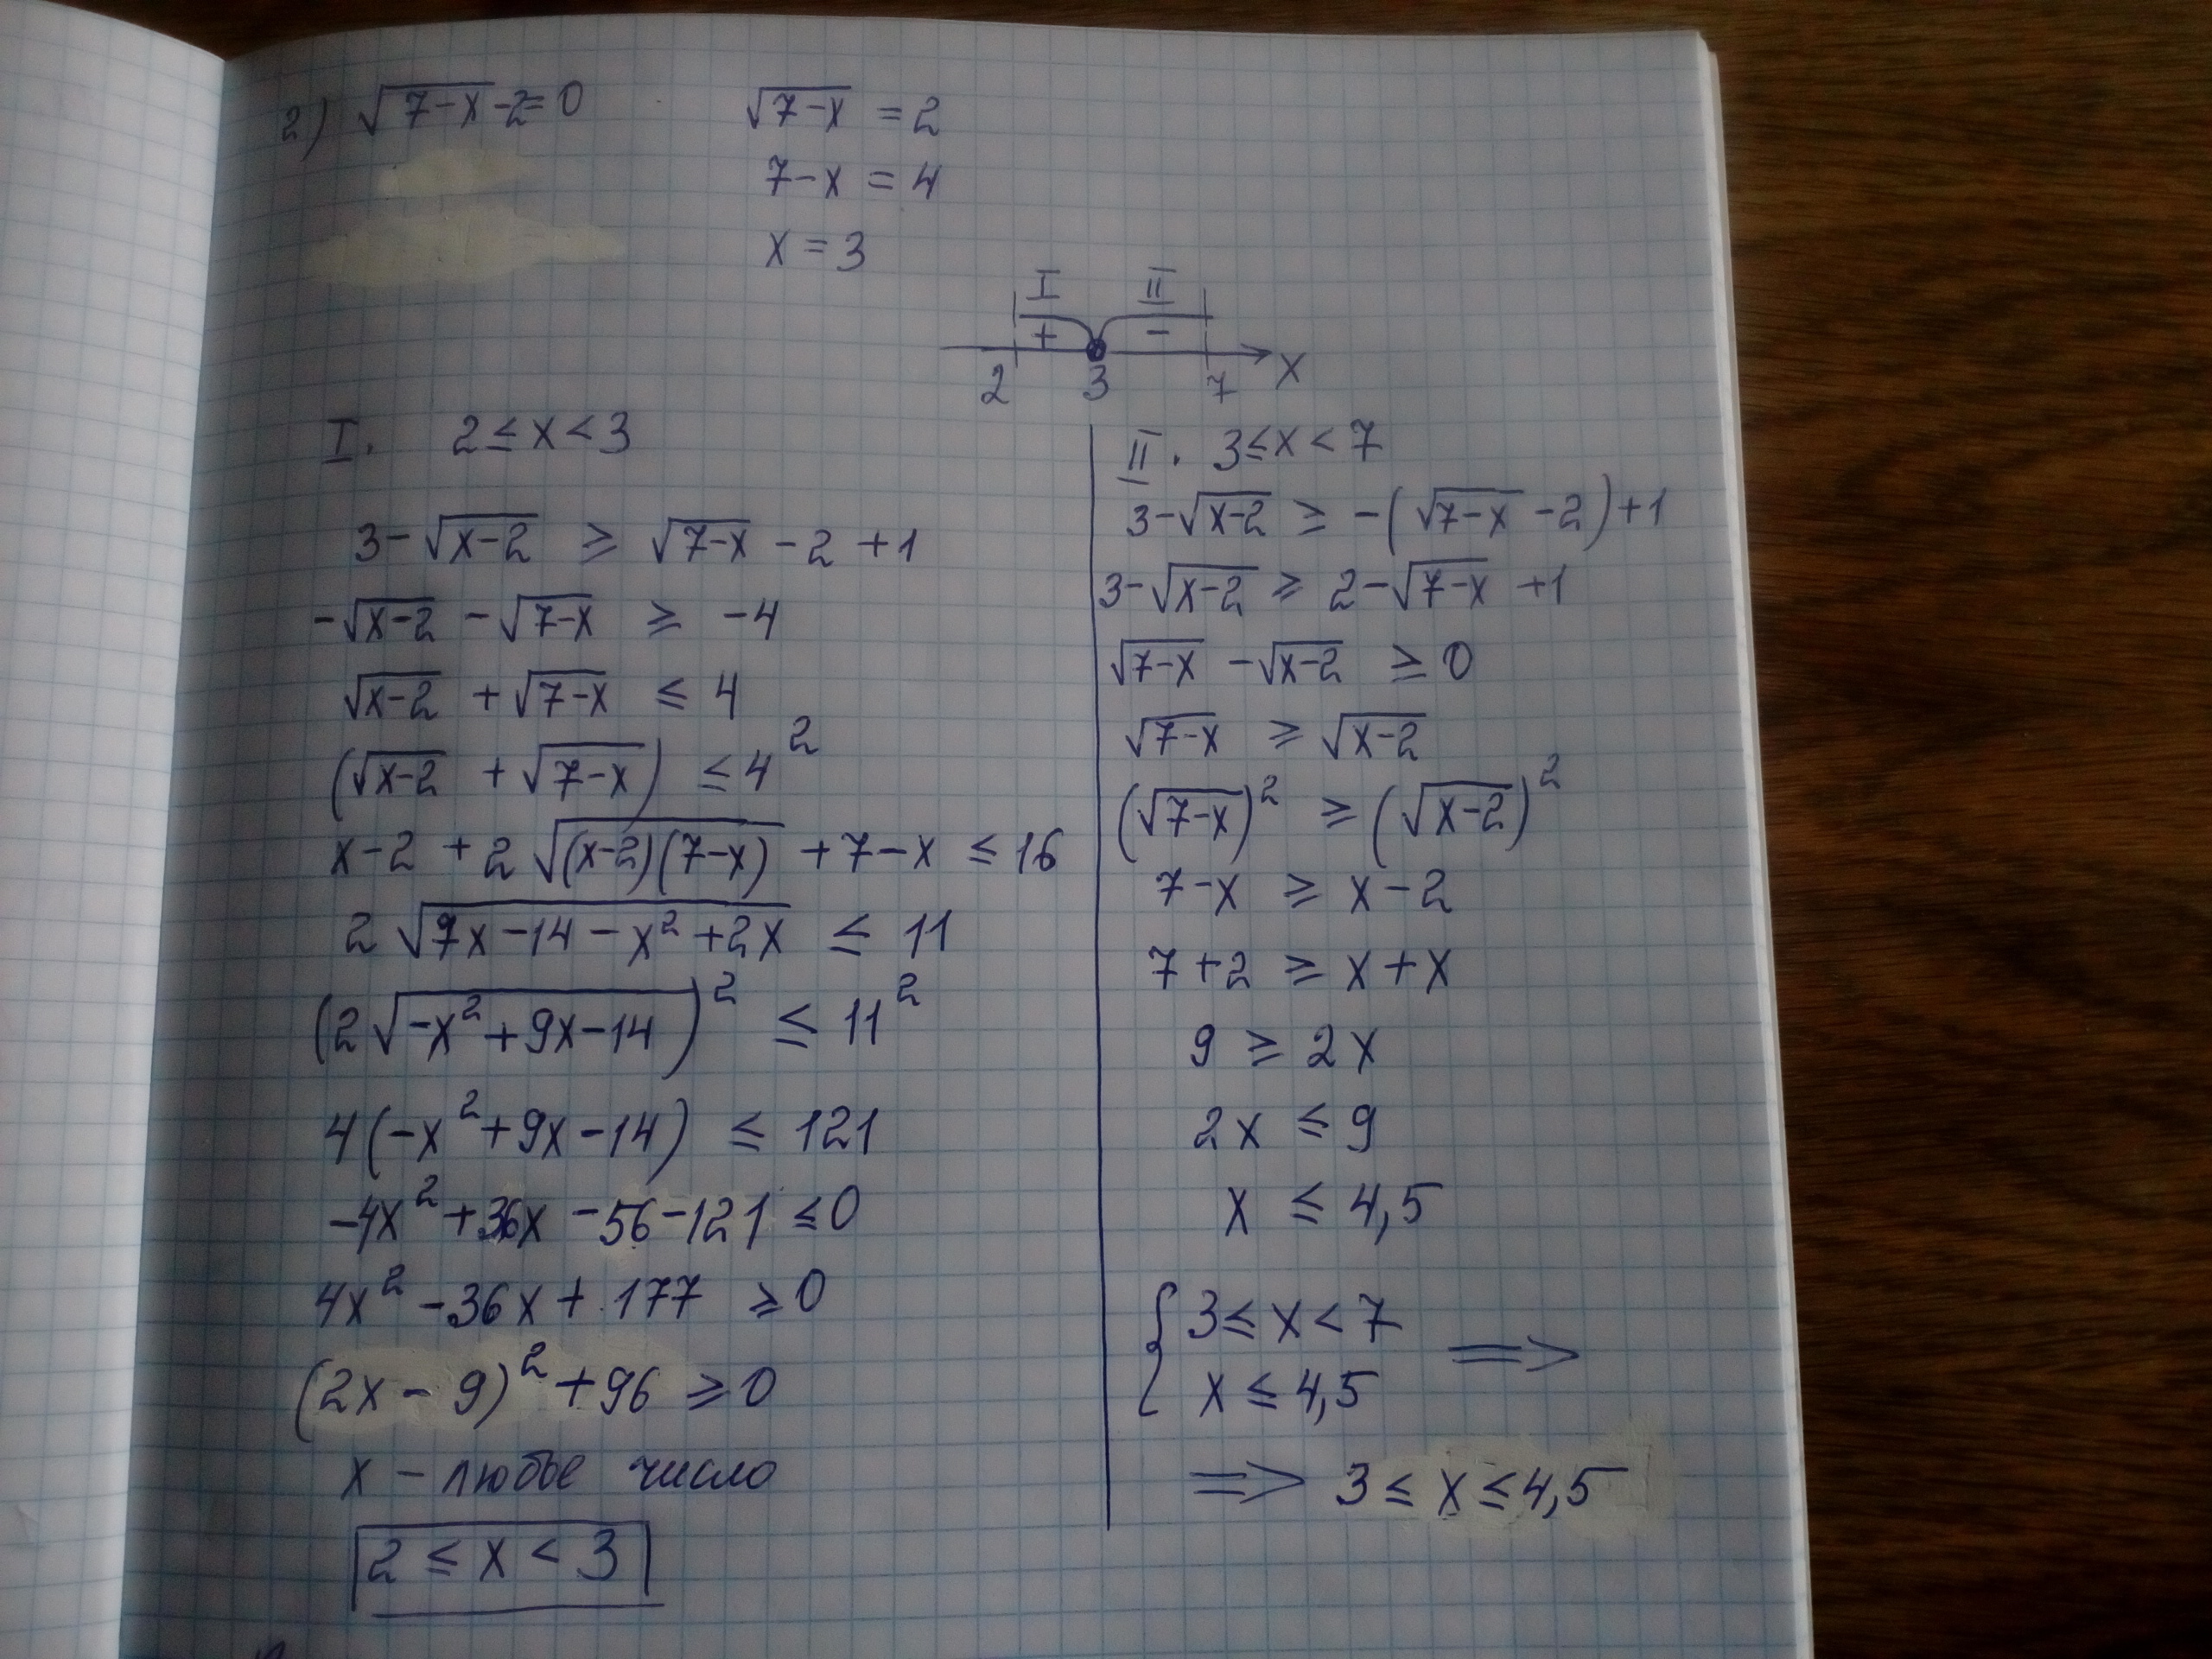 2) √7-x -2=0
√7-x = 2
7-x = 4
x = 3
I II
+ -
2 3 7 x
I. 2≤x<3
3-√x-2 ≥ √7-x -2 +1
-√x-2 -√7-x ≥ -4
√x-2 +√7-x ≤ 4
(√x-2 +√7-x) ≤4²
x-2 +2√(x-2)(7-x) +7-x ≤16
2√7x-14-x²+2x ≤ 11
(2√-x²+9x-14)² ≤ 11²
4(-x²+9x-14) ≤ 121
-4x²+36x-56-121≤0
4x²-36x+177 ≥0
(2x-9)²+96 ≥0
x - любое число
2 ≤ x < 3
II. 3≤x<7
3-√x-2 ≥ -(√7-x -2)+1
3-√x-2 ≥ 2-√7-x +1
√7-x -√x-2 ≥0
√7-x ≥ √x-2
(√7-x)² ≥(√x-2)²
7-x ≥ x-2
7+2 ≥ x+x
9 ≥ 2x
2x ≤ 9
x ≤ 4,5
{3≤x<7
x≤4,5 =>
=> 3≤x≤4,5